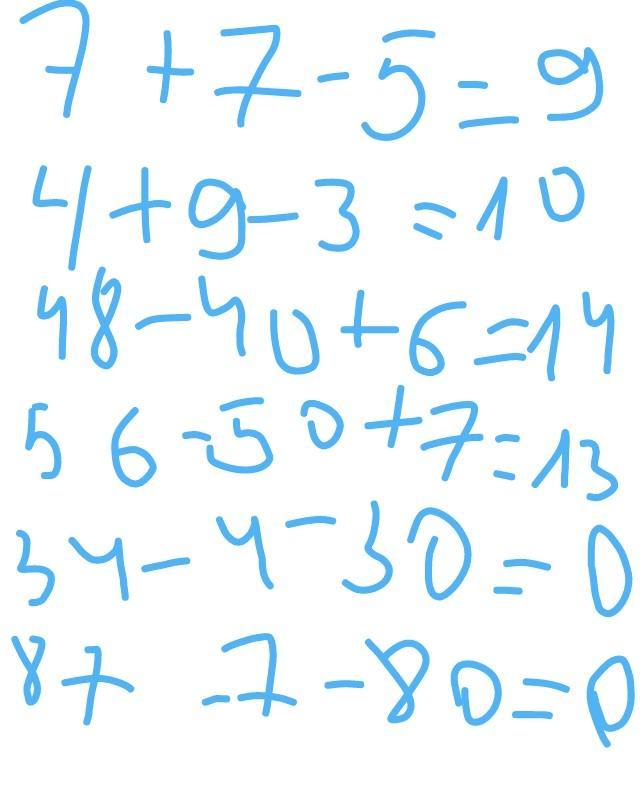 7 + 7 - 5 = 9
4 + 9 - 3 = 10
48 - 40 + 6 = 14
56 - 50 + 7 = 13
34 - 4 - 30 = 0
87 - 7 - 80 = 0